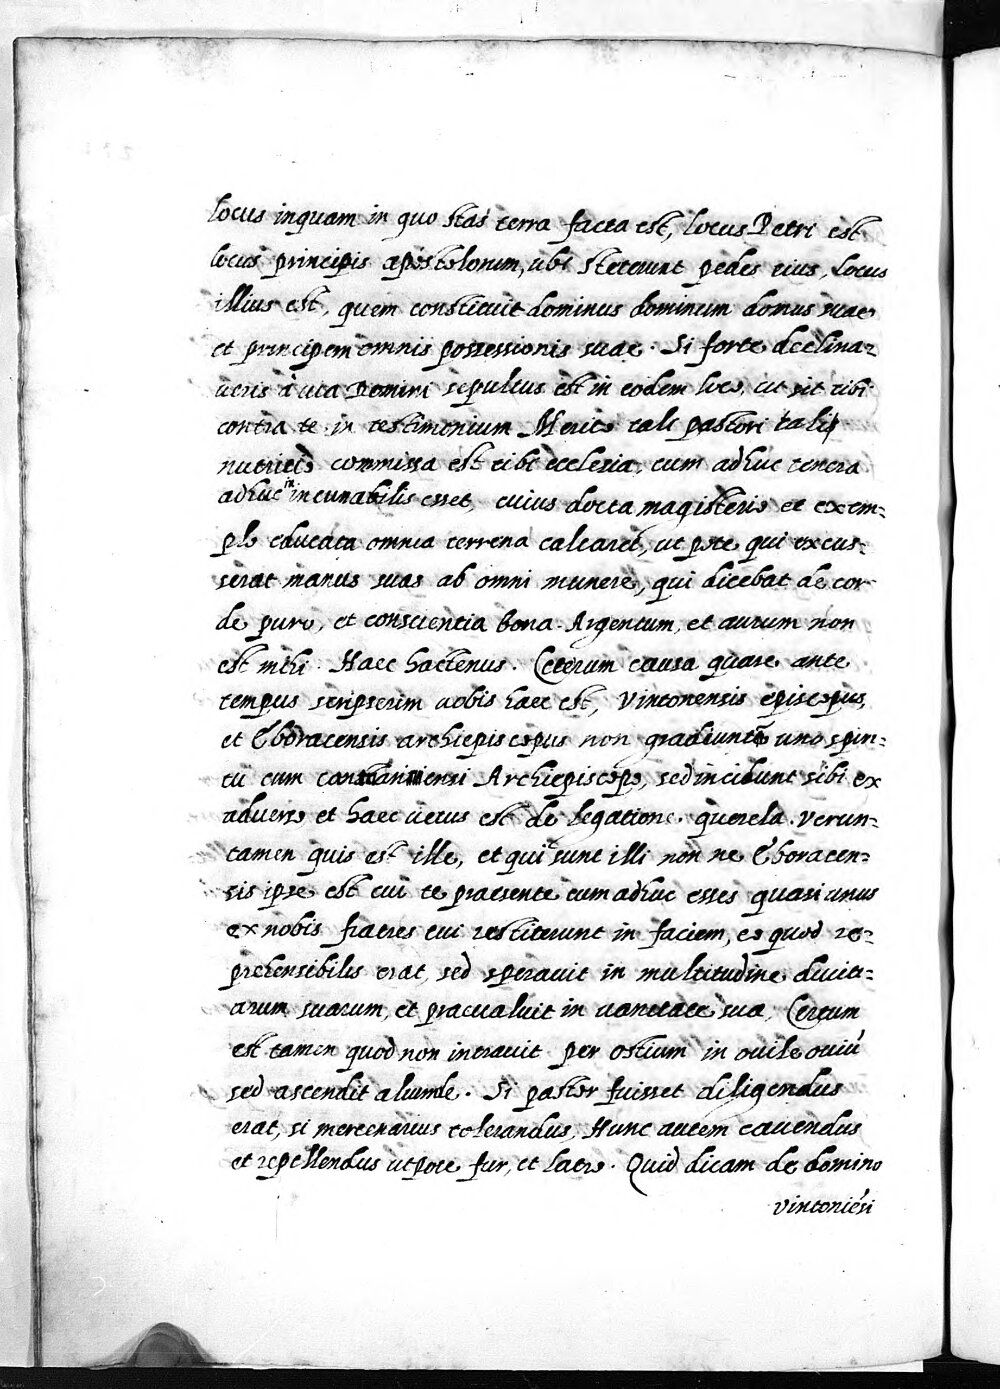 locus inquam in quo stas terra facta est, locus Petri est
locus principis apostolorum, ubi steterunt pedes eius, locus
illius est, quem constituit dominus dominum domus suae
et principem omnis possessionis suae. Si forte declina-
ueris a uia Domini sepultus est in eodem loco, ut sit tibi
contra te in testimonium Merito tali pastori tali
nutritio commissa est tibi ecclesia, cum adhuc tenera
adhuc in incunabilis esset, cuius docta magisterio et exem-
plo educata omnia terrena calcaret, ut pote qui excus-
serat manus suas ab omni munere, qui dicebat de cor-
de puro, et conscientia bona. Argentum, et aurum non
est mihi. Haec hactenus. Ceterum causa quare ante
tempus scripserim uobis haec est, Vintonensis episcopus,
et Eboracensis archiepiscopus non gradiunt uno spiri-
tu cum Archiepiscopo, sed incidunt sibi ex
aduerso et haec uetus est de legatione querela. Verun-
tamen quis est ille, et qui sunt illi non ne Eboracen-
sis ipse est cui te praesente cum adhuc esses quasi unus
ex nobis fratres tui restiterunt in faciem, eo quod re-
prehensibilis erat, sed sperauit in multitudine diuiti-
arum suarum, et praeualuit in uanitate sua, Certum
est tamen quod non intrauit per ostium in ouile ouiũ
sed ascendit aliunde. Si pastor fuisset diligendus
erat, si mercenarius tolerandus, Nunc autem cauendus
et repellendus utpote fur, et latro. Quid dicam de domino
Vintoniẽsi